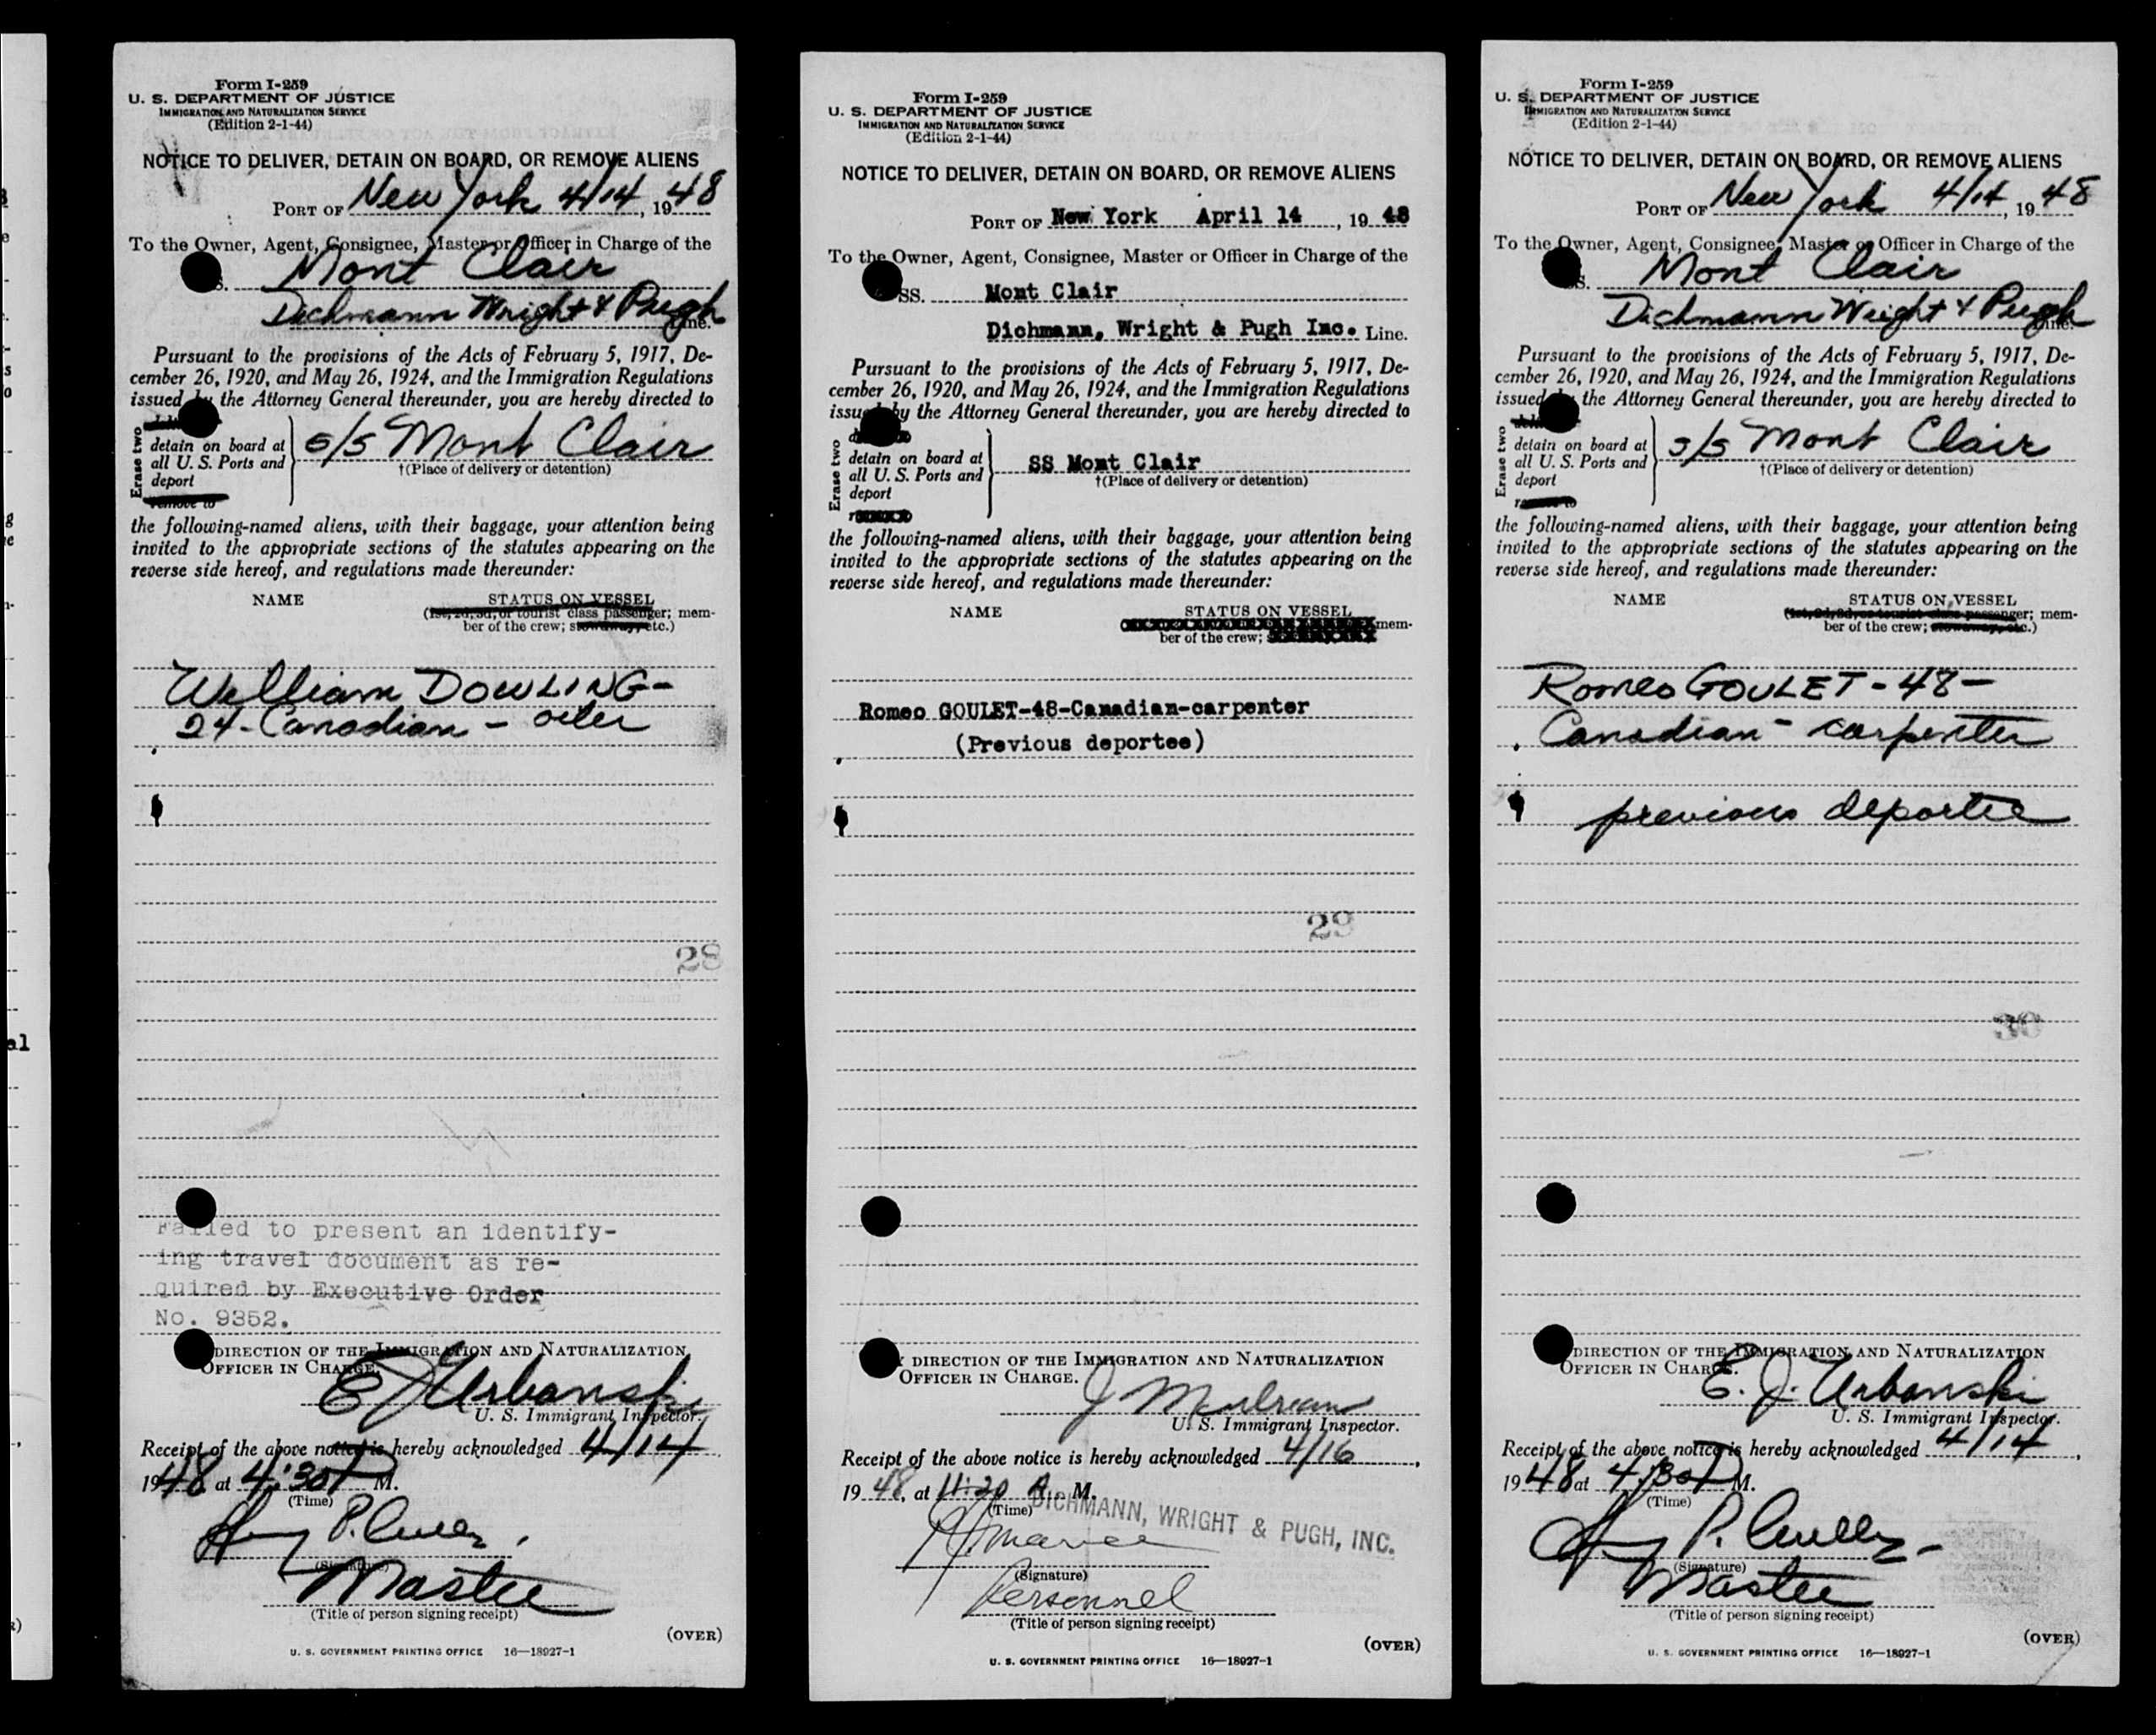 Form I-259
U. S. DEPARTMENT OF JUSTICE
IMMIGRATION AND NATURALIZATION SERVICE
(Edition 2-1-44)
NOTICE TO DELIVER, DETAIN ON BOARD, OR REMOVE ALIENS
PORT OF New York 4/14, 1948
To the Owner, Agent, Consignee, Master or Officer in Charge of the
Mont Clair
Dichmann Wright & Pugh Line.
Pursuant to the provisions of the Acts of February 5, 1917, De-
cember 26, 1920, and May 26, 1924, and the Immigration Regulations
issued by the Attorney General thereunder, you are hereby directed to
Erase two
detain on board at
all U. S. Ports and
deport
remove to
S/S Mont Clair
†(Place of delivery or detention)
the following-named aliens, with their baggage, your attention being
invited to the appropriate sections of the statutes appearing on the
reverse side hereof, and regulations made thereunder:
NAME STATUS ON VESSEL
(1st, 2d, 3d, or tourist class passenger; mem-
ber of the crew; stowaway, etc.)
William DOWLING-
24-Canadian - oiler
28
Failed to present an identify-
ing travel document as re-
quired by Executive Order
No. 9352.
DIRECTION OF THE IMMIGRATION AND NATURALIZATION
OFFICER IN CHARGE.
E J Urbanski
U. S. Immigrant Inspector.
Receipt of the above notice is hereby acknowledged 4/14,
1948 at 4:30 P M.
(Time)
(Signature)
Master
(Title of person signing receipt)
(OVER)
U. S. GOVERNMENT PRINTING OFFICE 16—18927-1
Form I-259
U. S. DEPARTMENT OF JUSTICE
IMMIGRATION AND NATURALIZATION SERVICE
(Edition 2-1-44)
NOTICE TO DELIVER, DETAIN ON BOARD, OR REMOVE ALIENS
PORT OF New York April 14, 19 48
To the Owner, Agent, Consignee, Master or Officer in Charge of the
SS. Mont Clair
Dichmann, Wright & Pugh Inc. Line.
Pursuant to the provisions of the Acts of February 5, 1917, De-
cember 26, 1920, and May 26, 1924, and the Immigration Regulations
issued by the Attorney General thereunder, you are hereby directed to
Erase two
detain on board at
all U. S. Ports and
deport
SS Mont Clair
†(Place of delivery or detention)
the following-named aliens, with their baggage, your attention being
invited to the appropriate sections of the statutes appearing on the
reverse side hereof, and regulations made thereunder:
NAME STATUS ON VESSEL
mem-
ber of the crew;
Romeo GOULET-48-Canadian-carpenter
(Previous deportee)
29
DIRECTION OF THE IMMIGRATION AND NATURALIZATION
OFFICER IN CHARGE.
U. S. Immigrant Inspector.
Receipt of the above notice is hereby acknowledged 4/16,
19 48, at 11:20 A. M.
(Time)
DICHMANN, WRIGHT & PUGH, INC.
(Signature)
Personnel
(Title of person signing receipt)
(OVER)
U. S. GOVERNMENT PRINTING OFFICE 16—18927-1
Form I-259
U. S. DEPARTMENT OF JUSTICE
IMMIGRATION AND NATURALIZATION SERVICE
(Edition 2-1-44)
NOTICE TO DELIVER, DETAIN ON BOARD, OR REMOVE ALIENS
PORT OF New York 4/14, 1948
To the Owner, Agent, Consignee, Master or Officer in Charge of the
Mont Clair
Dichmann Wright & Pugh Line.
Pursuant to the provisions of the Acts of February 5, 1917, De-
cember 26, 1920, and May 26, 1924, and the Immigration Regulations
issued by the Attorney General thereunder, you are hereby directed to
Erase two
detain on board at
all U. S. Ports and
deport
S/S Mont Clair
†(Place of delivery or detention)
the following-named aliens, with their baggage, your attention being
invited to the appropriate sections of the statutes appearing on the
reverse side hereof, and regulations made thereunder:
NAME STATUS ON VESSEL
(1st, 2d, 3d, or tourist class passenger; mem-
ber of the crew; stowaway, etc.)
Romeo GOULET-48-
Canadian - carpenter
previous deportee
30
DIRECTION OF THE IMMIGRATION AND NATURALIZATION
OFFICER IN CHARGE.
E. J. Urbanski
U. S. Immigrant Inspector.
Receipt of the above notice is hereby acknowledged 4/14,
1948 at 4:30 P M.
(Time)
(Signature)
Master
(Title of person signing receipt)
(OVER)
U. S. GOVERNMENT PRINTING OFFICE 16—18927-1